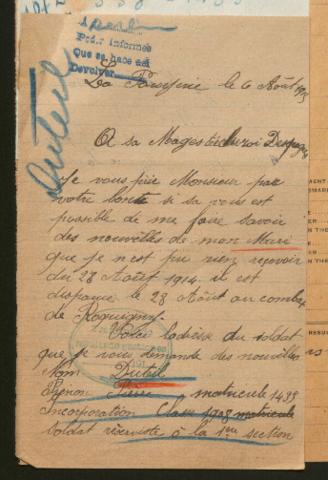 Para informes
Que se hace así
Devolver
Duteil
La le 6 Août
A sa Magesté le roi Despagne
Je vous prie Monsieur par
votre bonté si sa vous est
possible de me faire savoir
des nouvelles de mon Mari
que je n'est pu rien reçevoir
du 28 Août 1914. il est
disparue le 28 Août au combat
de Roquigny.
Voici ladrèsse du soldat
que je vous demande des nouvelles
Nom Duteil
Prénom Pierre matricule 1435
Incorporation Classe 1908 matricule
soldat réserviste à la 1ere section